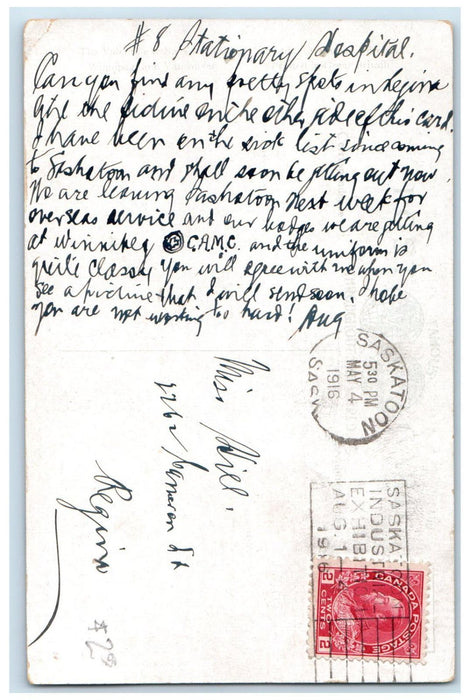 #8 Stationary Hospital.
Can you find any pretty spots in Regina
like the picture on the other side of this card.
I have been on the sick list since coming
to Saskatoon and shall soon be getting out now
We are leaving Saskatoon next week for
overseas service and our badges we are getting
at Winnipeg C.A.M.C. and the uniform is
quite classy, you will agree with me when you
see a picture that I will send soon. I hope
you are not working to hard! Aug
SASKATOON
530 PM
MAY 4
1916
SASK
Miss Hill.
Cameron St
Regina
SASKATO
INDUST
EXHIBIT
AUG. 1
1916
CANADA POSTAGE
2 TWO 2
CENTS
$2